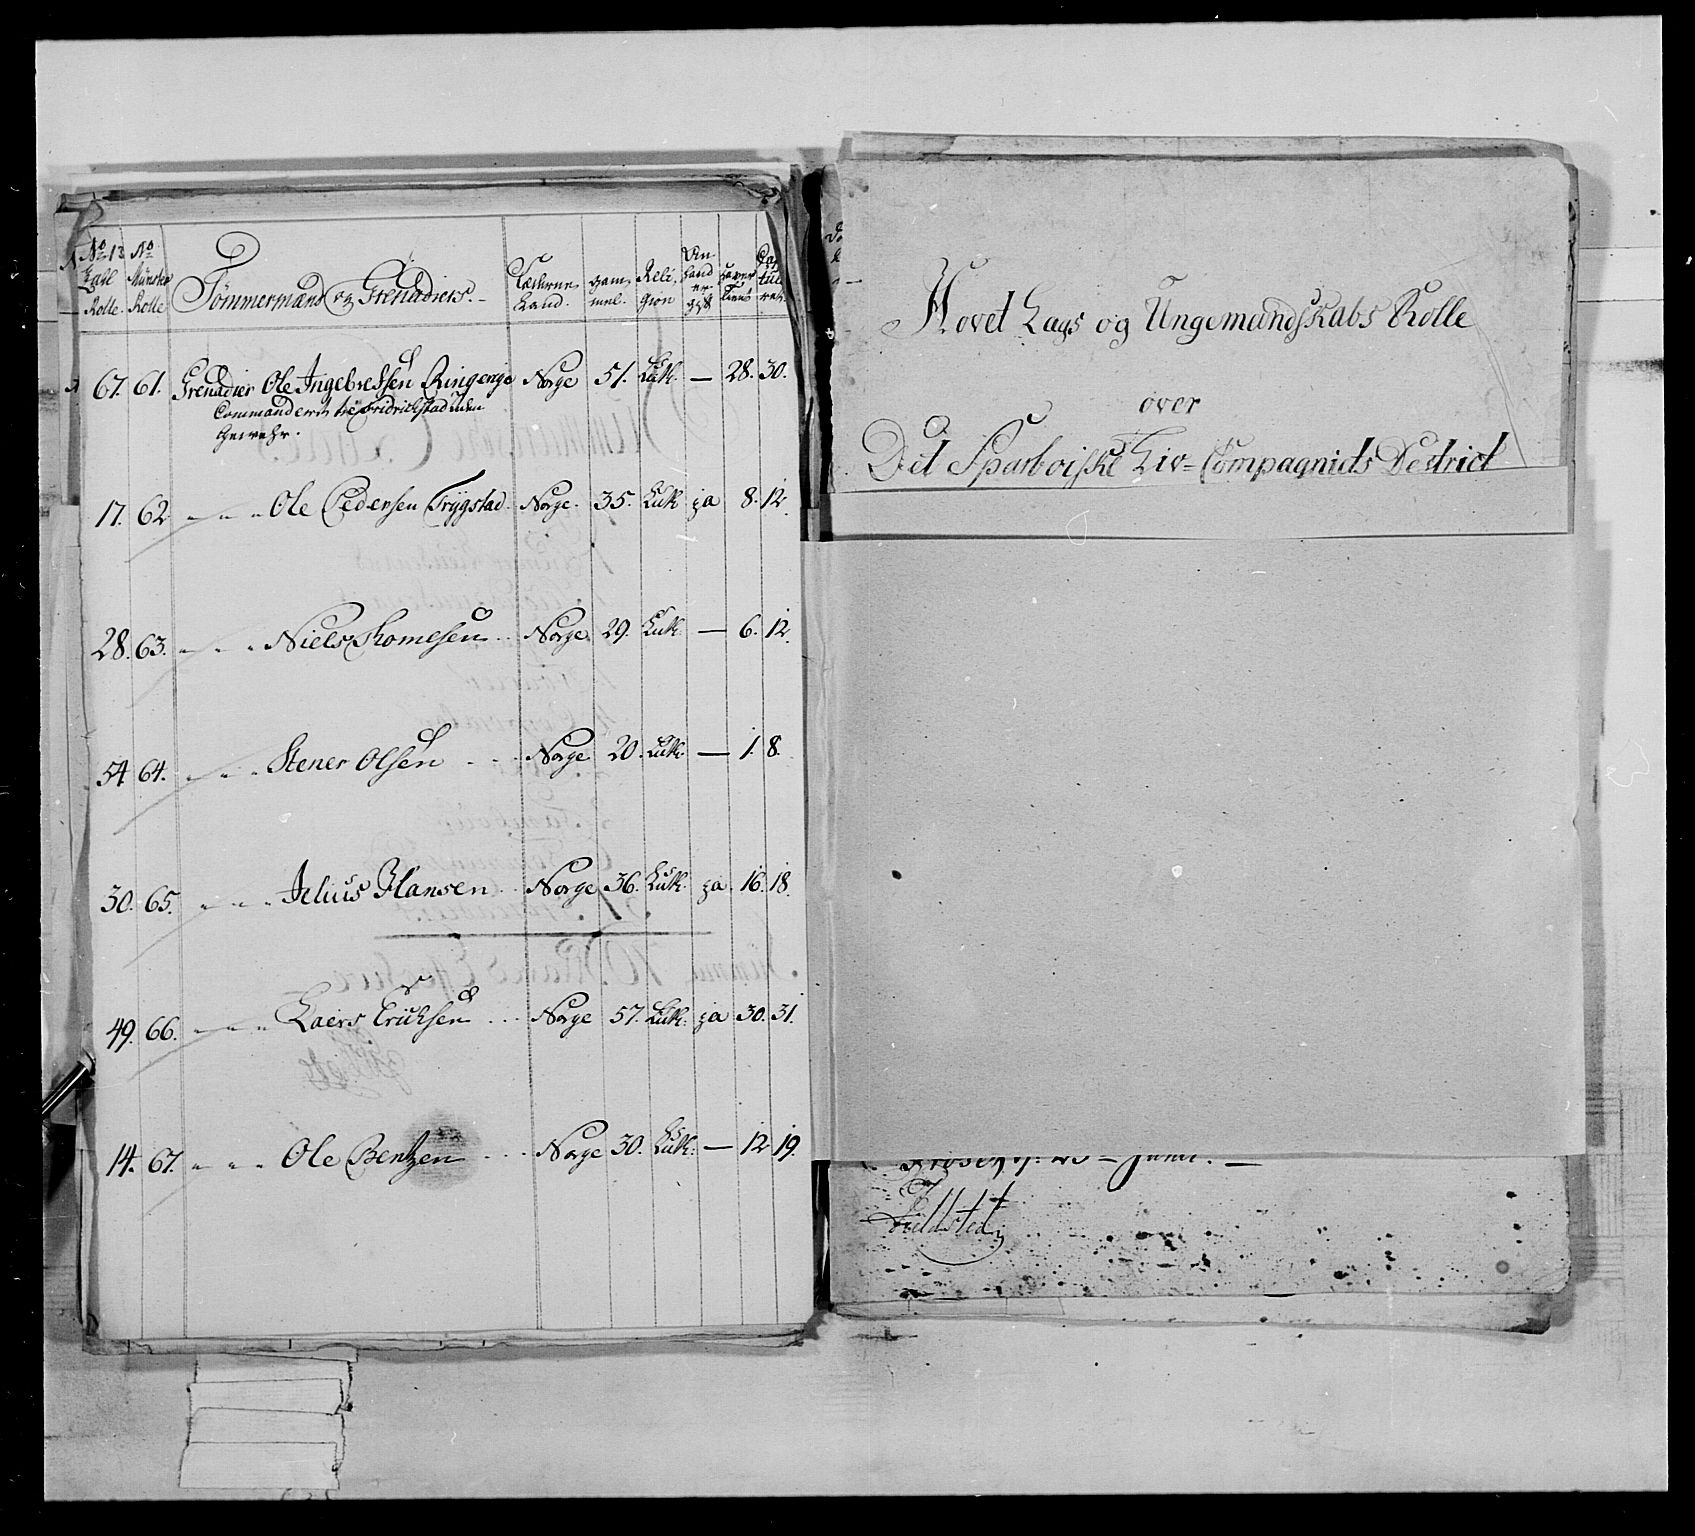 No 13 Zahl Rolle. No Münster Rolle Tømmermænd og Grenadiers. Fæderne Land. gam mel. Reli gion
67. 61. Grenadier Ole Ingebretsen Ringenge Norge 51. Luth. — 28. 30.
Commanderet til Fridrichstad uden
Gewehr.
17. 62. " " " Ole Pedersen Trygstad. Norge. 35. Luth ja 8. 12.
28. 63. " " " Niels Thomesen .. Norge. 29. Luth. — 6. 12.
54 64. " " " Stener Olsen . . . . Norge 20. Luth. — 1. 8.
30. 65. " " " Julius Hansen .. Norge 36. Luth. ja 16. 18.
49. 66. " " " Laers Ericksen ... Norge 57. Luth. ja 30. 31.
14. 67. " " " Ole Bentzen ... Norge 30. Luth. — 12 19.
Hovet Lags og Ungemandskabs Rolle
over
Det Sparboiske Liv=Compagniets District